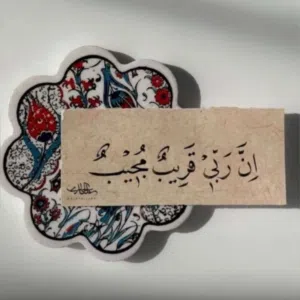 اِنَّ رَبِّيْ قَرِيْبٌ مُجِيْبٌ